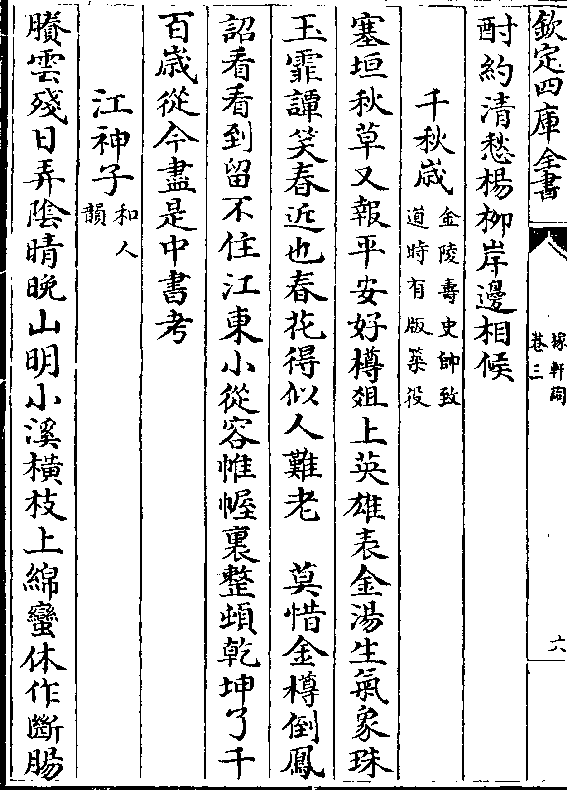 欽定四庫全書
稼軒詞
卷三
六
酎約清愁楊柳岸邊相候
千秋歲 金陵壽史帥致
道時有版築役
塞垣秋草又報平安好樽爼上英雄表金湯生氣象珠
玉霏譚笑春近也春花得似人難老 莫惜金樽倒鳳
詔看看到留不住江東小從容帷幄裏整頓乾坤了千
百歲從今盡是中書考
江神子 和人
韻
賸雲殘日弄陰晴晚山明小溪橫枝上綿蠻休作斷腸